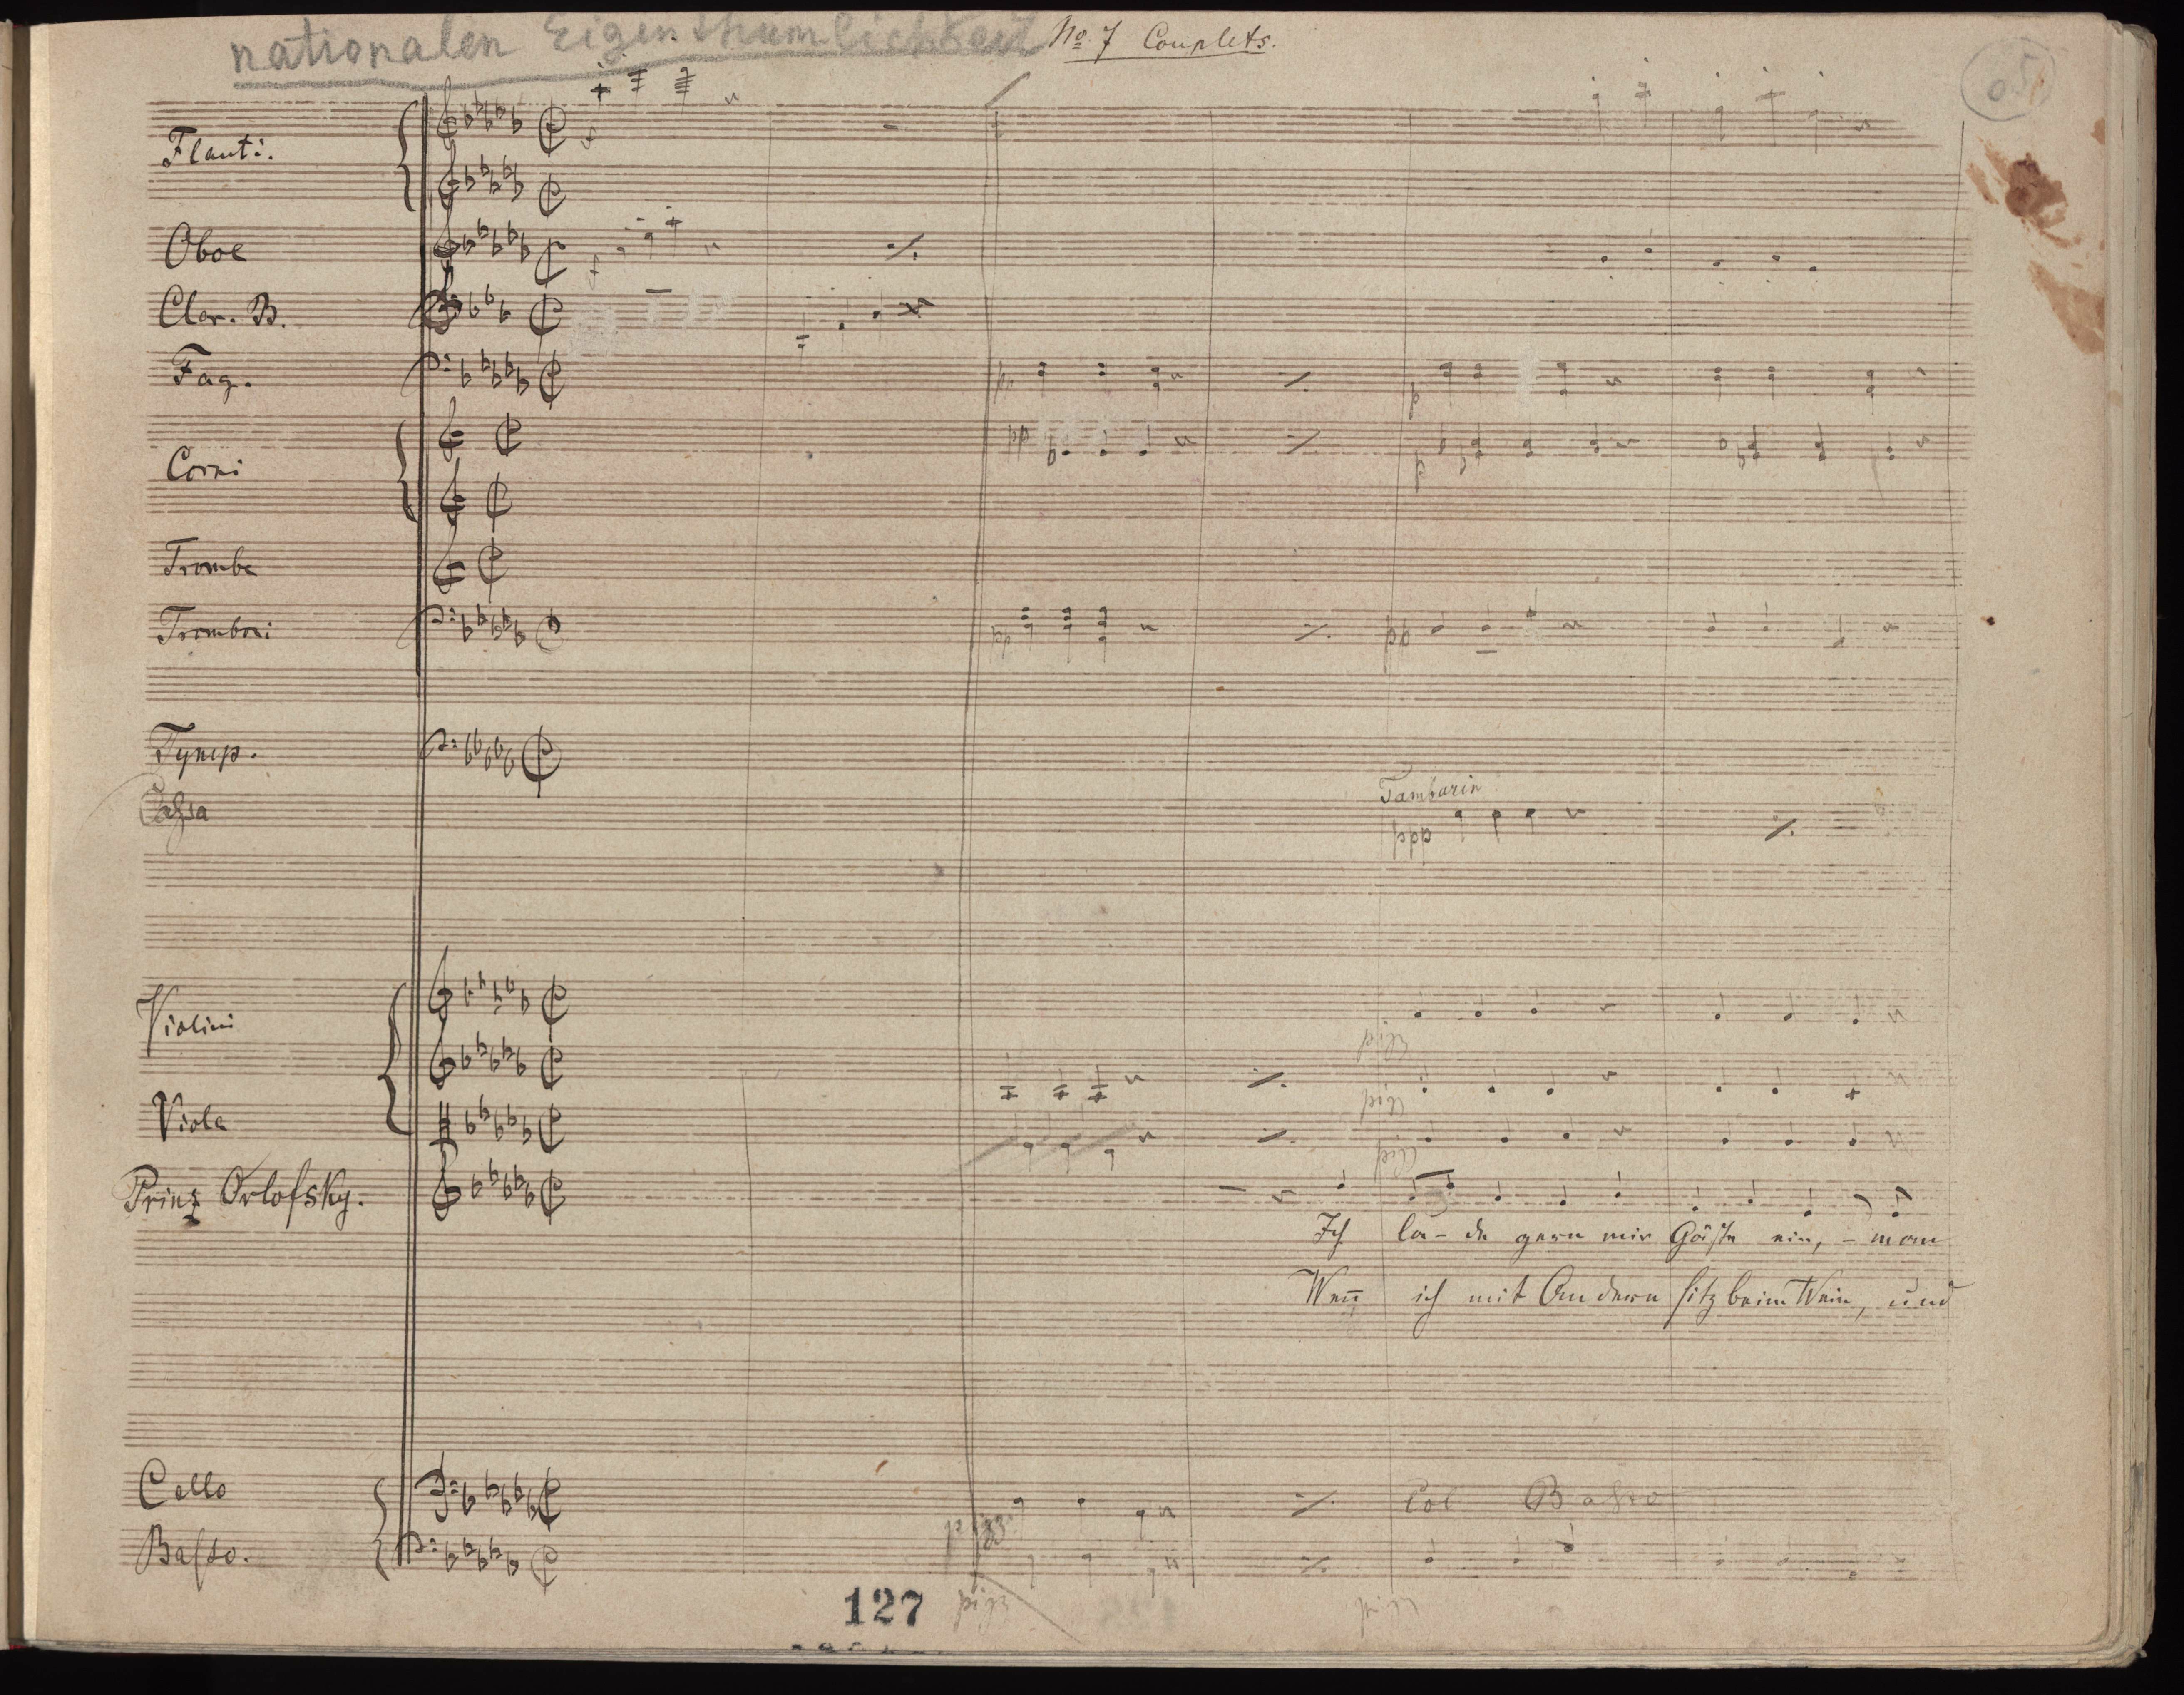 nationalen Eigenthümlichkeit No 7 Couplets.
Flauti.
Oboe
Clar. B.
Fag.
pp
p
Corni
pp
p
Trombe
Tromboni
pp
pp
Tymp.
Tambarin
Cassa
ppp
Violini
pizz
pizz
Viola
pizz
Prinz Orlofsky.
Ich la-de gern mir Gäste ein, - man
Wen̄ ich mit Andern sitz beim Wein, und
Cello
Col Basso
pizz
Basso.
127
pizz
pizz